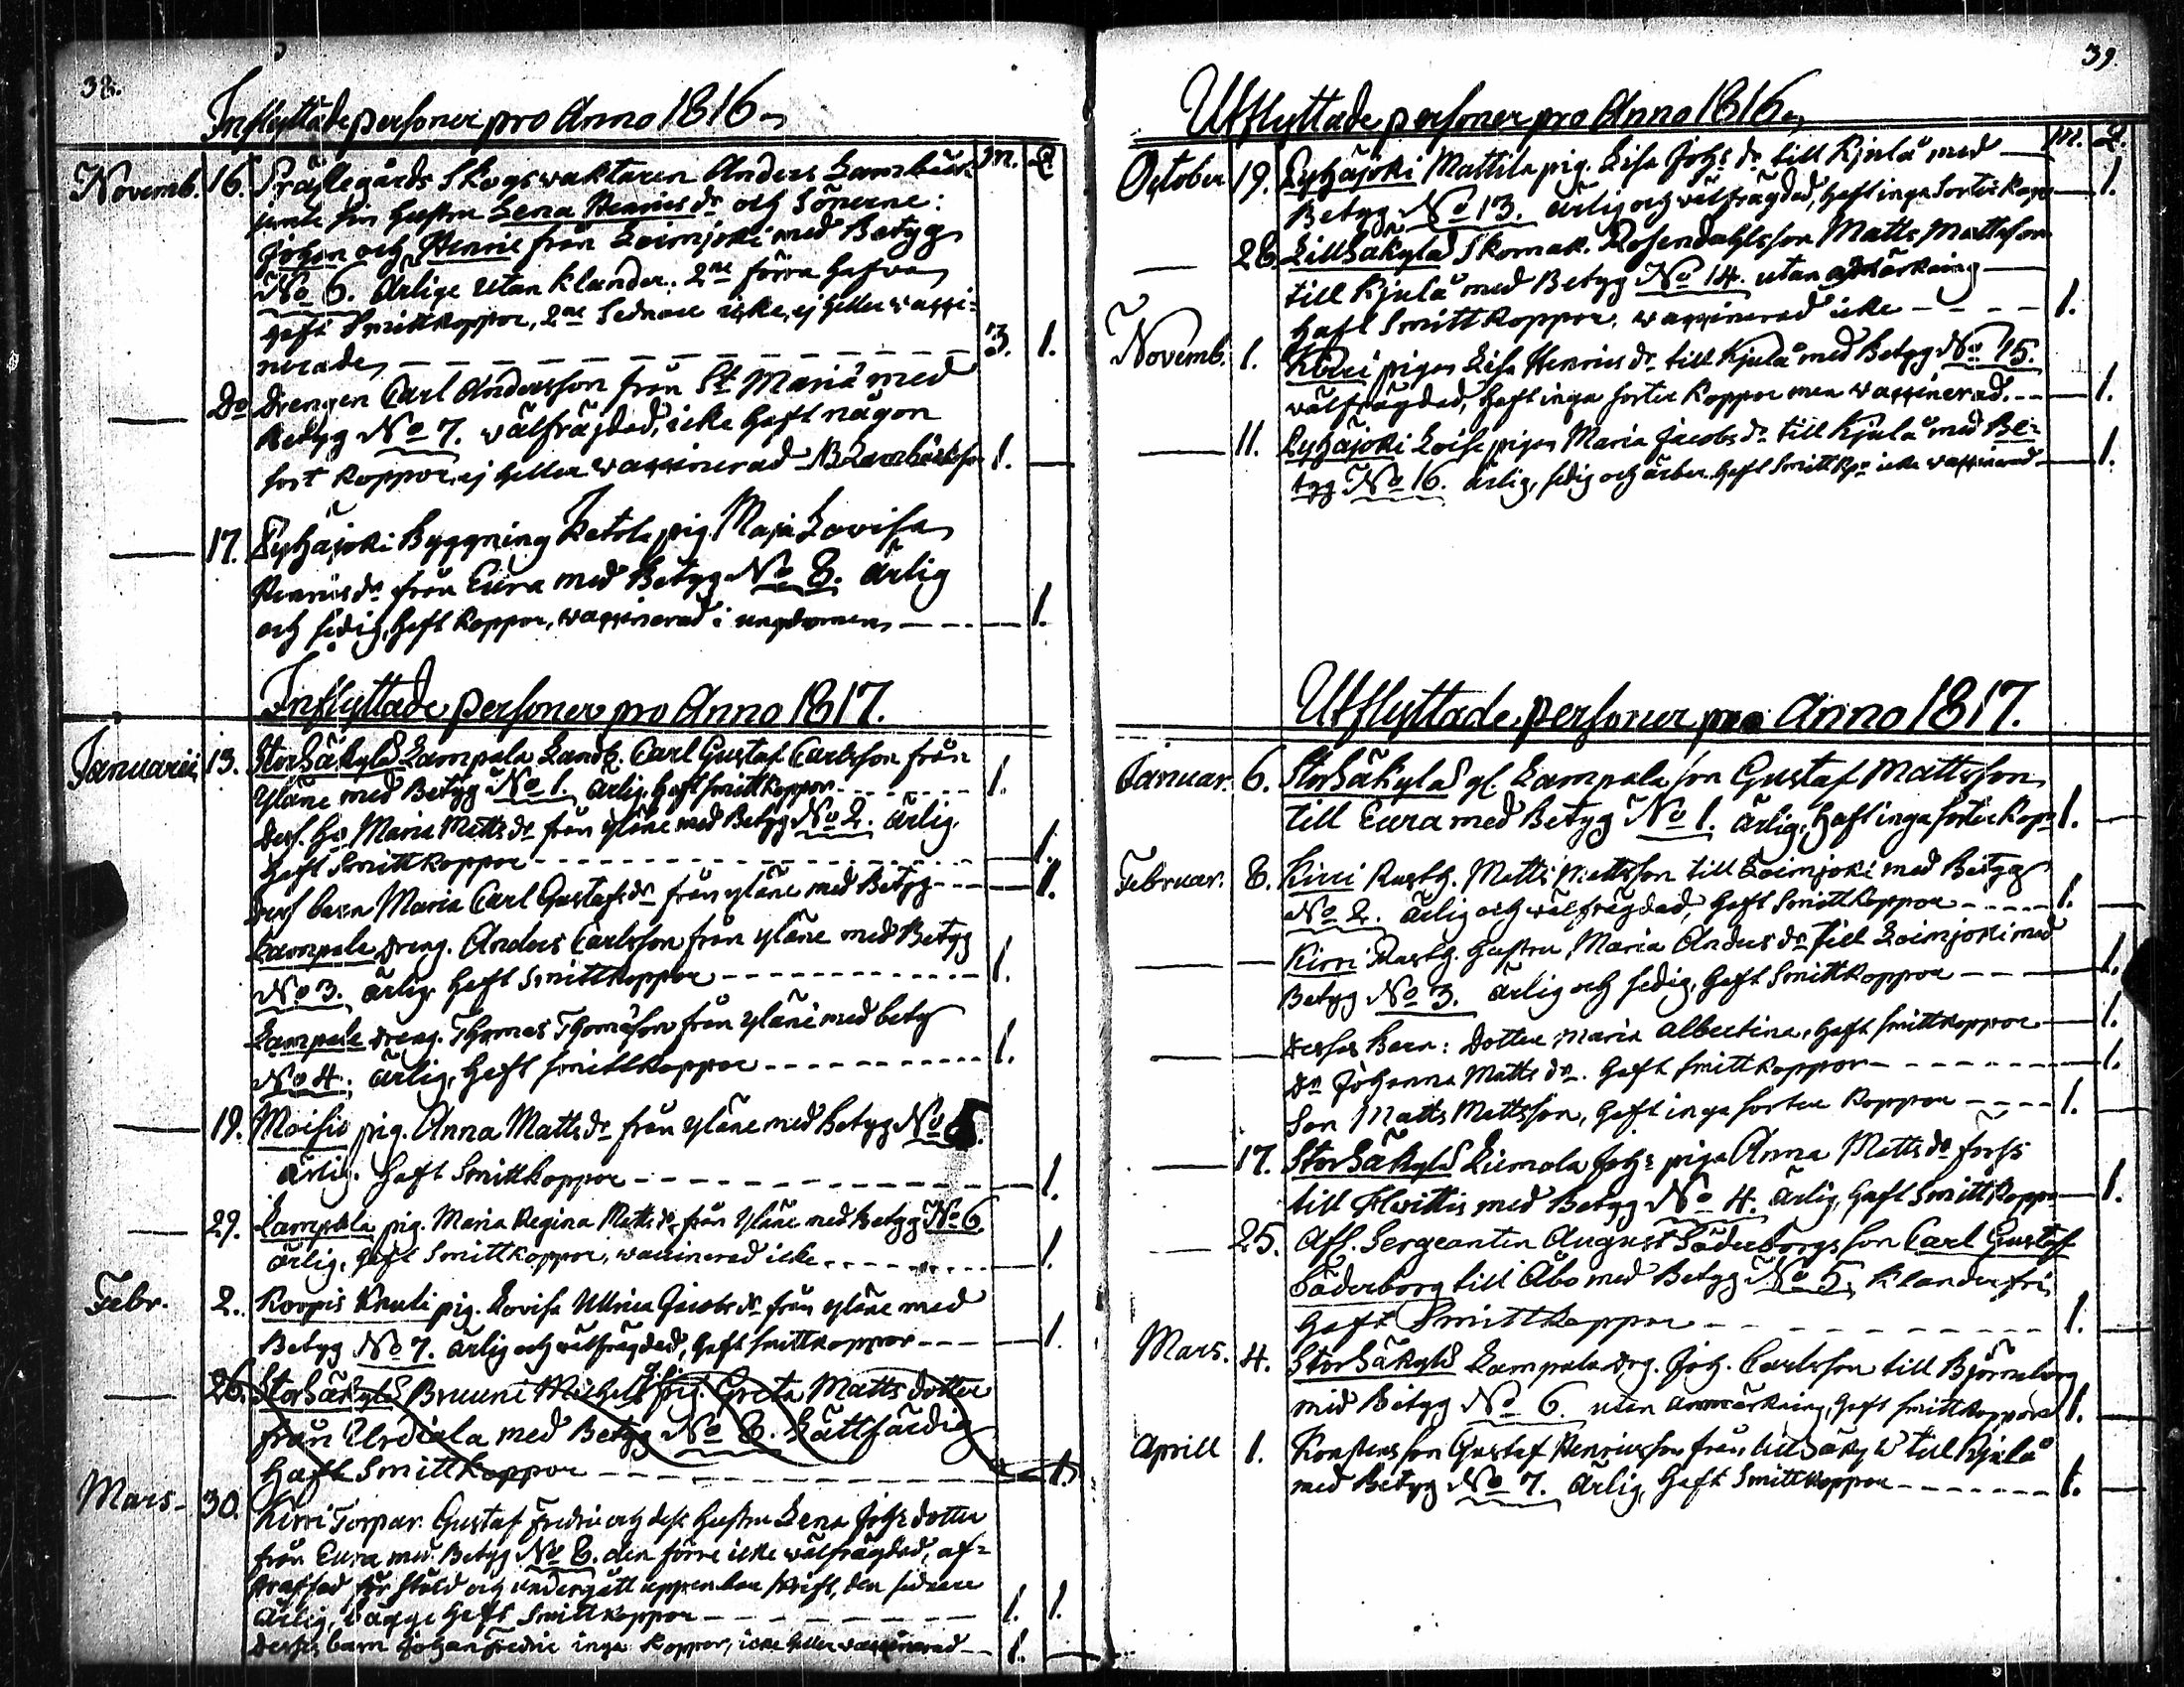 38.
Inflyttade personer pro Anno 1816
M. Q
Novemb. 16. Prästegårds Skogswaktaren Anders
jemte sin hustru Lena Henricsdr och Sönerne:
Johan och Henric från Loimjoki med Betyg
No 6. Ärlige utan klander. 2ne förra hafva
haft Smittkoppor, 2ne Sednare icke, ej heller waxi-
nerade 3. 1.
Do Drengen Carl Andersson från St Mariä med
Betyg No 7. wälfrägdad, icke haft någon
sort koppor, ej heller waxinerad 1. —
— 17. Pyhäjoki Byggning Ketola pig. Maja Lovisa
Henricsdr från Eura med Betyg No 8. ärlig
och sedig, haft koppor, waxinerad i ungdomen — 1.
Inflyttade Personer pro Anno 1817.
Januarii 13. StorSäkylä Lampala Landb. Carl Gustaf Carlsson från
Yläne med Betyg No 1. ärlig, haft smittkoppor 1.
Dess. Ho Maria Mattsdr från yläne med Betyg No 2. ärlig.
haft Smittkoppor — 1.
Dess barn Maria Carl Gustafsdr från yläne med Betyg — 1.
Lampala dreng. Anders Carlsson från yläne med Betyg
No 3. ärlig haft Smittkoppor 1.
Lampala dreng. Thomas Thomasson från yläne med betyg
No 4. ärlig, haft smittkoppor 1.
— 19. Moisio pig. Anna Mattsdr från yläne med Betyg No 5.
ärlig. haft Smittkoppor — 1.
— 29. Lampala pig. Maria Regina Mattsdr från Yläne med Betyg No 6.
ärlig, haft Smittkoppor, waccinerad icke — 1.
Febr. 2. Korpis Knuti pig. Lovisa Ullrica Jacobsdr från yläne med
Betyg No 7. ärlig och wälfrägdad, haft smittkoppor — 1.
— 26. StorSäkylä Bruuni Michels pig. Greta Matts dotter
från Urdiala med Betyg No 8. Lättfärdig
haft Smittkoppor — 1.
Mars 30. Kirri Torpar. Gustaf Fredric och dess hustru Lena Johs dotter
från Eura med Betyg No 8. den förre icke wälfrägdad, af-
straffad för stöld och undergått uppenbar skrift, den sednare
ärlig, bägge haft Smittkoppor 1. 1.
Desses barn Johan Fredric inga koppor, icke heller waxinerad 1. —
39.
Utflyttade personer pro Anno 1816
M. Q.
October 19. Pyhäjoki Mattila pig. Lisa Johs dr till Kjulå med
Betyg No 13. ärlig och wälfrägdad, haft inga sorter kopp. — 1.
— 28. LillSäkylä Skomak. Rosendahls son Matts Mattsson
till Kjulå med Betyg No 14. utan anmärkning
haft Smittkoppor, waxinerad icke 1.
Novemb. 1. Kirri pigan Lisa Henricsdr till Kjulå med Betyg No 15.
wälfrägdad, haft inga sorter koppor men waxinerad. — 1.
— 11. Pyhäjoki Loise pigan Maria Jacobsdr till Kjulå med Be-
tyg No 16. ärlig, sedig och ärbar. haft Smittkpr icke waxinerad — 1.
Utflyttade Personer pro Anno 1817.
Januar. 6. StorSäkylä gl. Lampala son Gustaf Mattsson
till Eura med Betyg No 1. ärlig, haft inga sorter kopr 1. —
Februar. 8. Kirri Rusth. Matts Mattsson till Loimjoki med Betyg
No 2. ärlig och wälfrägdad, haft Smittkoppor 1. —
— Kirri Rusth. hustru Maria Andersdr till Loimjoki med
Betyg No 3. ärlig och sedig, haft Smittkoppor — 1.
— Desses Barn: Dotter Maria Albertina, haft smittkoppor — 1.
Dr Johanna Matts dr. haft smittkoppor — 1.
Son Matts Mattsson, haft inga sorter koppor 1. —
— 17. StorSäkylä Liimola Johs piga Anna Matts dr
till Hvittis med Betyg No 4. ärlig, haft Smittkoppor — 1.
— 25. Afl. Sergeanten August Söderborgs son Carl Gustaf
Söderborg till Åbo med Betyg No 5. klanderfri
haft Smittkoppor 1. —
Mars. 4. StorSäkylä Lampala drg. Joh. Carlsson till Björneborg
med Betyg No 6. utan anmärkning, haft smittkoppor 1. —
Aprill 1. son Gustaf Henricsson från LillSäkylä till Kjulå
med Betyg No 7. Ärlig, haft Smittkoppor 1. —